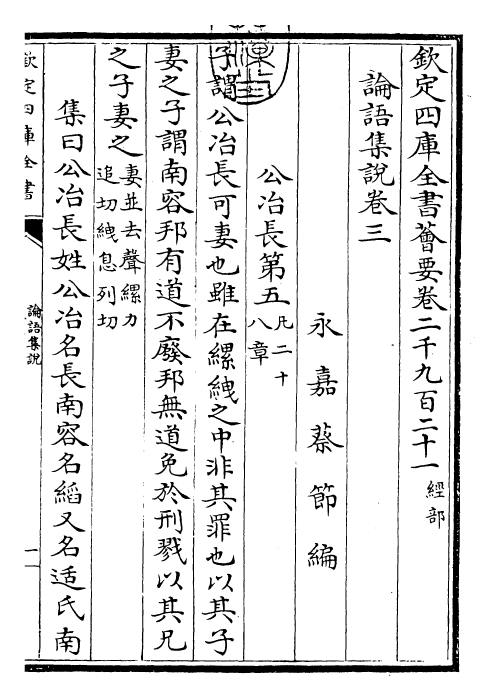 欽定四庫全書薈要卷二千九百二十一經部
論語集說卷三
永嘉蔡節編
公冶長第五凡二十
八章
子謂公冶長可妻也雖在縲絏之中非其罪也以其子
妻之子謂南容邦有道不廢邦無道免於刑戮以其兄
之子妻之妻並去聲縲力
追切絏息列切
集曰公冶長姓公冶名長南容名縚又名适氏南
欽定四庫全書
論語集說
一